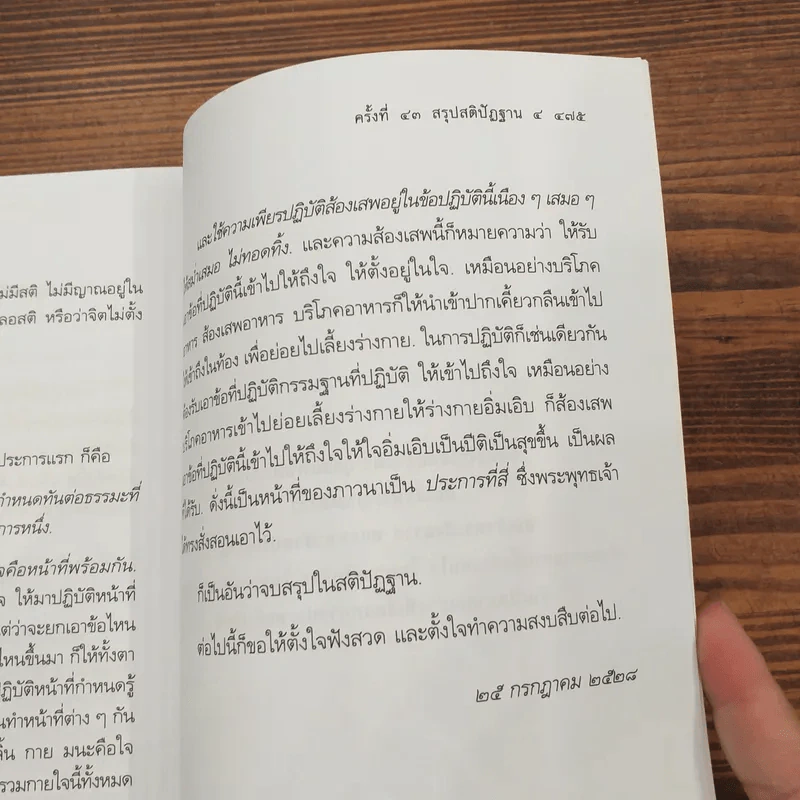 ไม่มีสติ ไม่มีญาณอยู่ใน
ลอสติ หรือว่าจิตไม่ตั้ง
ประการแรก ก็คือ
กำหนดทันต่อธรรมะที่
การหนึ่ง.
คือหน้าที่พร้อมกัน.
ให้มาปฏิบัติหน้าที่
แต่ว่าจะยกเอาข้อไหน
ไหนขึ้นมา ก็ให้ทั้งตา
ปฏิบัติหน้าที่กำหนดรู้
นทำหน้าที่ต่าง ๆ กัน
ลิ้น กาย มนะคือใจ
รวมกายใจนี้ทั้งหมด
ครั้งที่ ๔๓ สรุปสติปัฏฐาน ๔ ๔๗๕
และใช้ความเพียรปฏิบัติส้องเสพอยู่ในข้อปฏิบัตินี้เนือง ๆ เสมอ ๆ
ไม่ทอดทิ้ง. และความส้องเสพนี้ก็หมายความว่า ให้รับ
เอาข้อที่ปฏิบัตินี้เข้าไปให้ถึงใจ ให้ตั้งอยู่ในใจ. เหมือนอย่างบริโภค
อาหาร ส้องเสพอาหาร บริโภคอาหารก็ให้นำเข้าปากเคี้ยวกลืนเข้าไป
ให้เข้าถึงในท้อง เพื่อย่อยไปเลี้ยงร่างกาย. ในการปฏิบัติก็เช่นเดียวกัน
ต้องรับเอาข้อที่ปฏิบัติกรรมฐานที่ปฏิบัติ ให้เข้าไปถึงใจ เหมือนอย่าง
บริโภคอาหารเข้าไปย่อยเลี้ยงร่างกายให้ร่างกายอิ่มเอิบ ก็ส้องเสพ
เอาข้อที่ปฏิบัตินี้เข้าไปให้ถึงใจให้ใจอิ่มเอิบเป็นปีติเป็นสุขขึ้น เป็นผล
ที่ได้รับ. ดั่งนี้เป็นหน้าที่ของภาวนาเป็น ประการที่สี่ ซึ่งพระพุทธเจ้า
ได้ทรงสั่งสอนเอาไว้.
ก็เป็นอันว่าจบสรุปในสติปัฏฐาน.
ต่อไปนี้ก็ขอให้ตั้งใจฟังสวด และตั้งใจทำความสงบสืบต่อไป.
๒๕ กรกฎาคม ๒๕๒๘